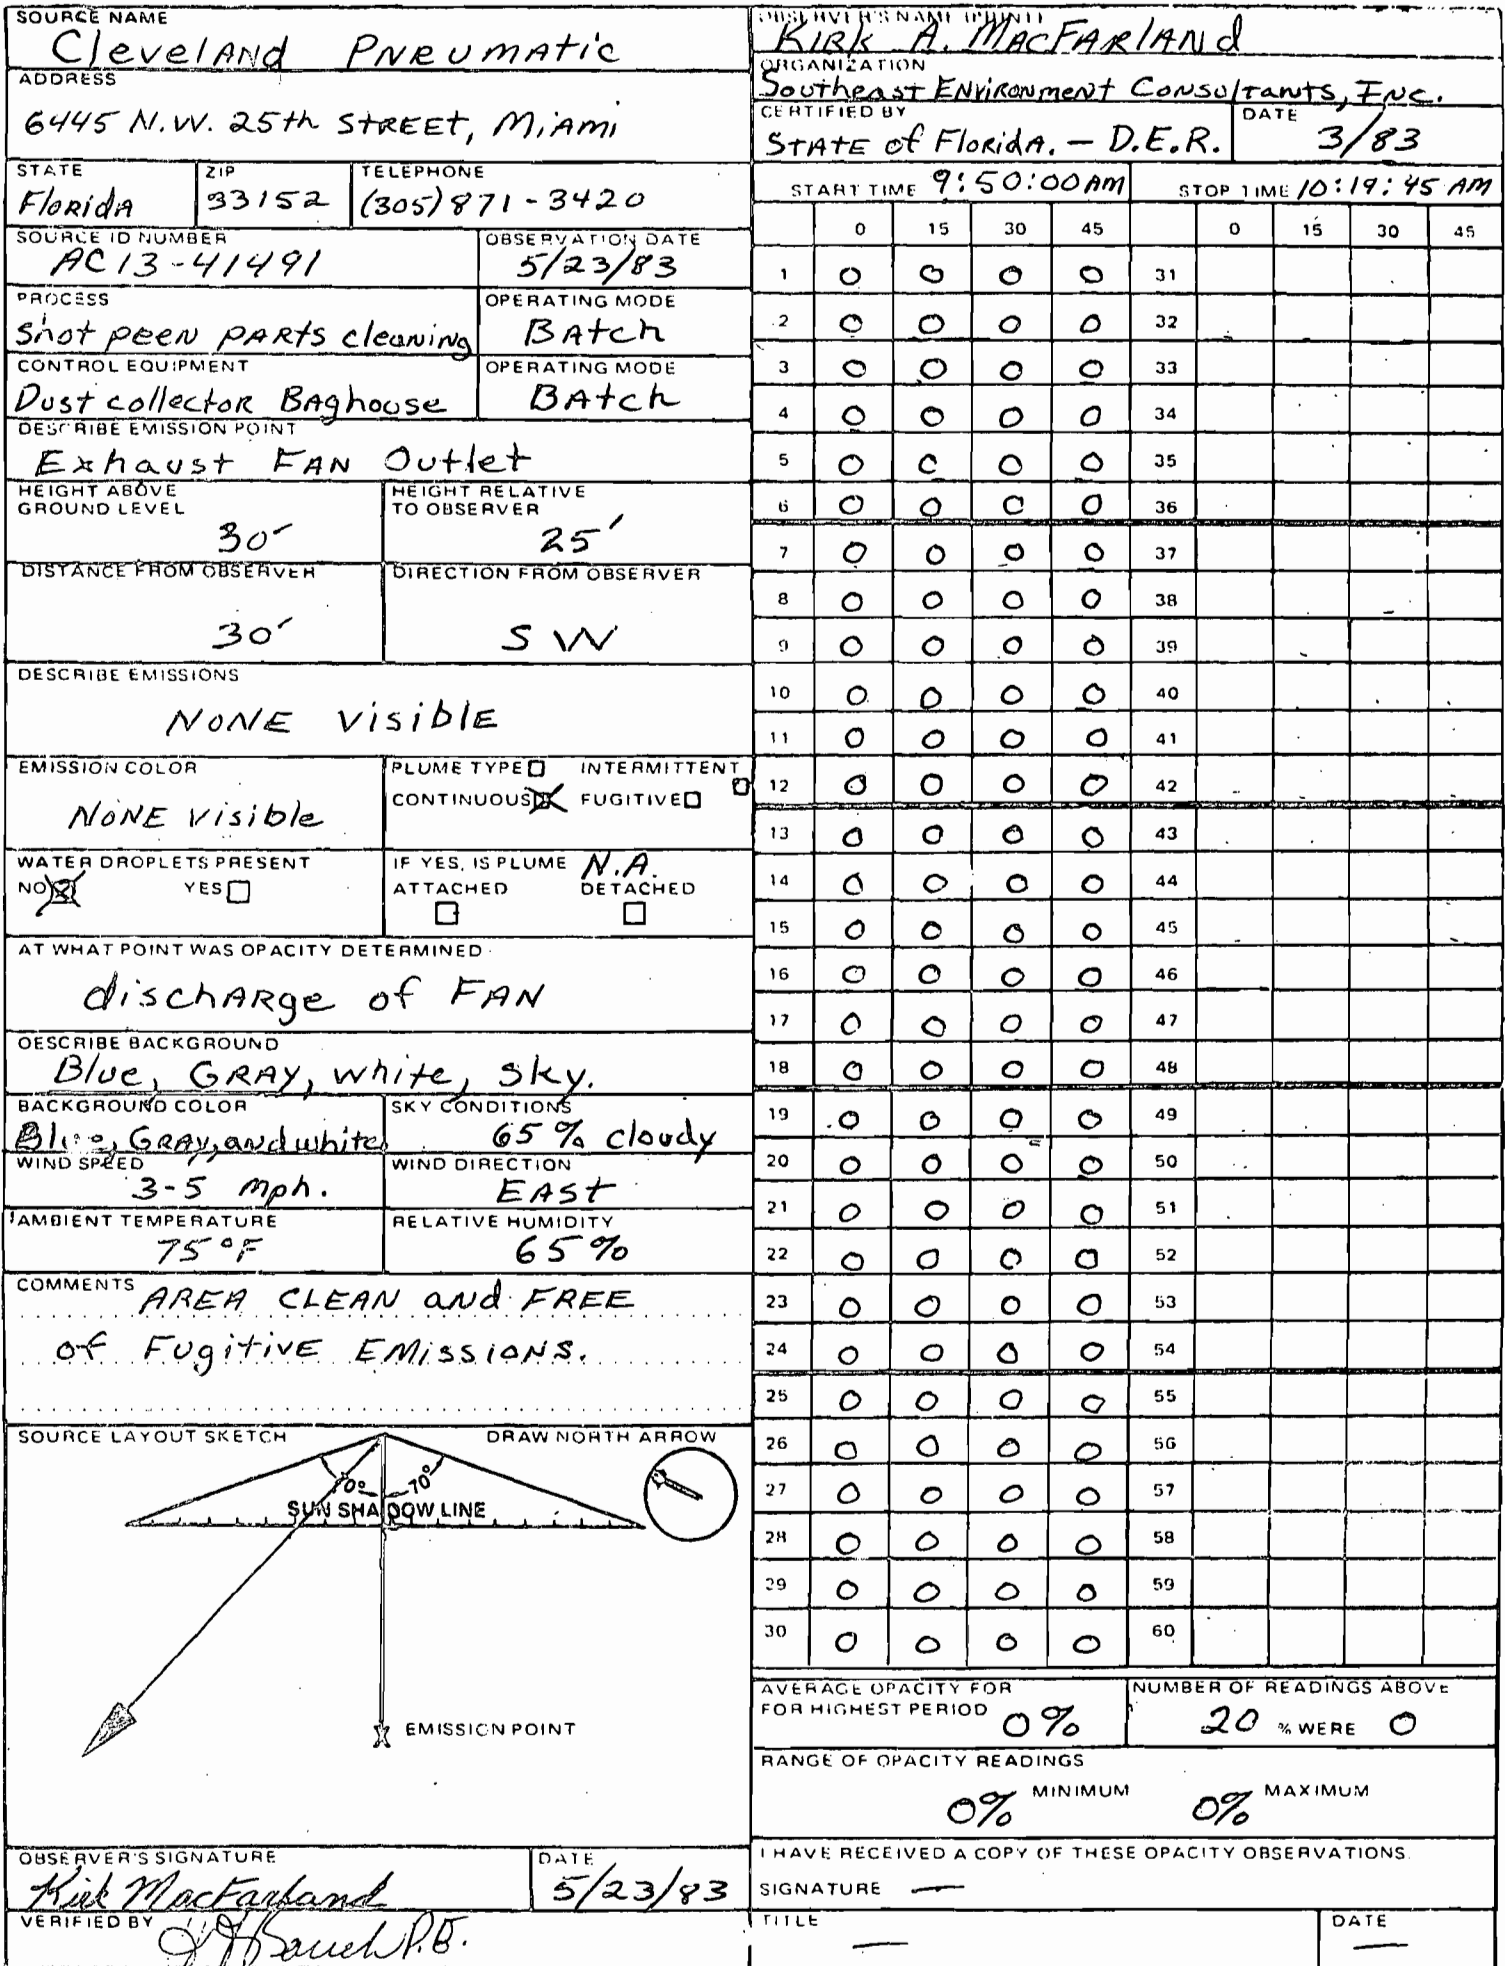 SOURCE NAME
Cleveland Pneumatic
ADDRESS
6445 N.W. 25th Street, Miami
STATE ZIP TELEPHONE
Florida 33152 (305) 871-3420
SOURCE ID NUMBER OBSERVATION DATE
AC13-41491 5/23/83
PROCESS OPERATING MODE
Shot peen parts cleaning Batch
CONTROL EQUIPMENT OPERATING MODE
Dust collector Baghouse Batch
DESCRIBE EMISSION POINT
Exhaust Fan Outlet
HEIGHT ABOVE GROUND LEVEL HEIGHT RELATIVE TO OBSERVER
30' 25'
DISTANCE FROM OBSERVER DIRECTION FROM OBSERVER
30' SW
DESCRIBE EMISSIONS
None visible
EMISSION COLOR PLUME TYPE INTERMITTENT
None visible CONTINUOUS FUGITIVE
WATER DROPLETS PRESENT IF YES, IS PLUME N.A.
NO YES ATTACHED DETACHED
AT WHAT POINT WAS OPACITY DETERMINED
discharge of Fan
DESCRIBE BACKGROUND
Blue, Gray, white, sky.
BACKGROUND COLOR SKY CONDITIONS
Blue, Gray, and white 65% cloudy
WIND SPEED WIND DIRECTION
3-5 mph. East
AMBIENT TEMPERATURE RELATIVE HUMIDITY
75°F 65%
COMMENTS AREA CLEAN and FREE
of Fugitive Emissions.
SOURCE LAYOUT SKETCH DRAW NORTH ARROW
70° 70°
SUN SHADOW LINE
EMISSION POINT
OBSERVER'S SIGNATURE DATE
Kirk MacFarland 5/23/83
VERIFIED BY
P.E.
OBSERVER'S NAME (PRINT)
Kirk A. MacFarland
ORGANIZATION
Southeast Environment Consultants, Inc.
CERTIFIED BY DATE
State of Florida. - D.E.R. 3/83
START TIME 9:50:00 AM STOP TIME 10:19:45 AM
0 15 30 45 0 15 30 45
1 0 0 0 0 31
2 0 0 0 0 32
3 0 0 0 0 33
4 0 0 0 0 34
5 0 0 0 0 35
6 0 0 0 0 36
7 0 0 0 0 37
8 0 0 0 0 38
9 0 0 0 0 39
10 0 0 0 0 40
11 0 0 0 0 41
12 0 0 0 0 42
13 0 0 0 0 43
14 0 0 0 0 44
15 0 0 0 0 45
16 0 0 0 0 46
17 0 0 0 0 47
18 0 0 0 0 48
19 0 0 0 0 49
20 0 0 0 0 50
21 0 0 0 0 51
22 0 0 0 0 52
23 0 0 0 0 53
24 0 0 0 0 54
25 0 0 0 0 55
26 0 0 0 0 56
27 0 0 0 0 57
28 0 0 0 0 58
29 0 0 0 0 59
30 0 0 0 0 60
AVERAGE OPACITY FOR NUMBER OF READINGS ABOVE
FOR HIGHEST PERIOD 0% 20 % WERE 0
RANGE OF OPACITY READINGS
0% MINIMUM 0% MAXIMUM
I HAVE RECEIVED A COPY OF THESE OPACITY OBSERVATIONS.
SIGNATURE —
TITLE DATE
— —